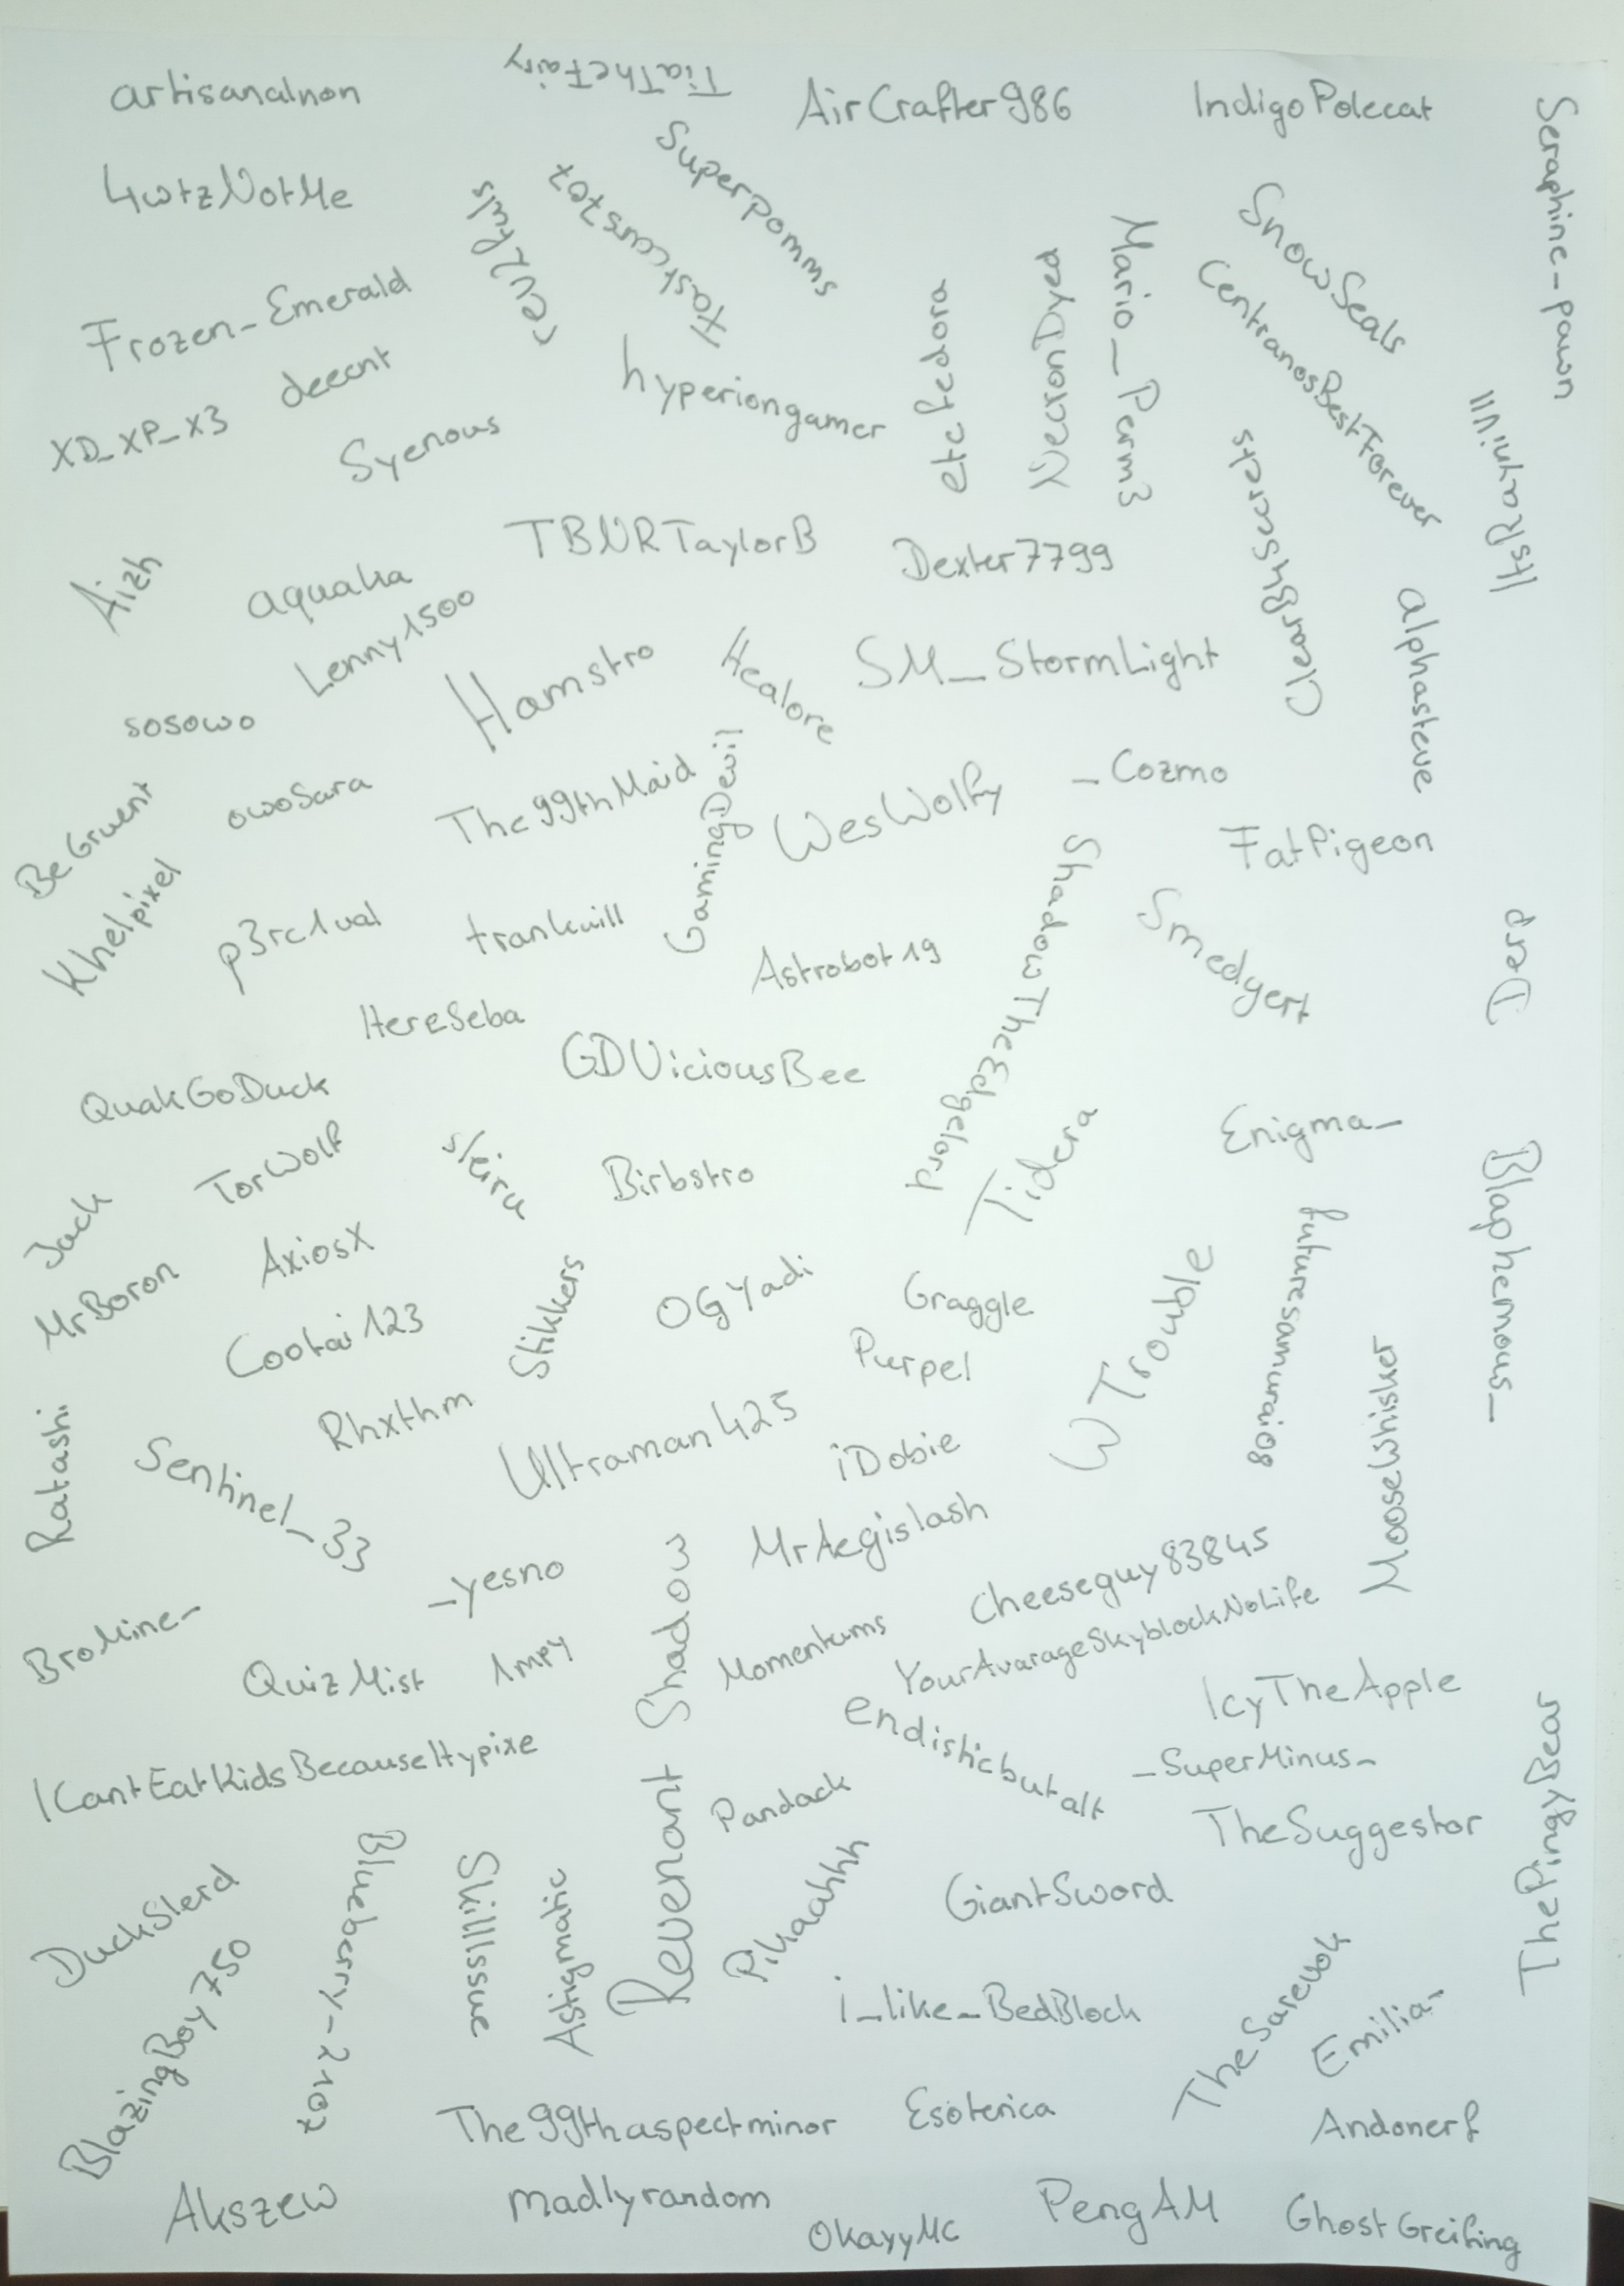 artisanalnon
TiaTheFairy
AirCrafter986
IndigoPolecat
Seraphine-pawn
4wtzNotMe
Superpomms
SnowSeals
Mario_Perm3
CentranosBestForever
Frozen-Emerald
hyperiongamer
etefedora
NecronDyed
deeent
XD_XP_X3
Syenous
ItsRaynivll
ClearBySecrets
TBNRTaylorB
Dexter7799
Aizh
Lenny1500
alphasteve
Hamstro
Healore
SM_StormLight
sosowo
owoSara
The99thMaid
GamingDevil
WesWolfy
_Cozmo
FatPigeon
BeGruent
Khelpixel
p3rc1val
trankuill
Astrobot19
ShadowTheEdgelord
Smedgert
Derp
HereSeba
GDViciousBee
QuakGoDuck
TorWolf
Birbstro
Tidera
Enigma_
Blaphemous_
Jack
MrBoron
AxiosX
Stikkers
OGYadi
Graggle
WTrouble
futuresamurai08
Purpel
MooseWhisker
Ratashi
Sentinel_33
Rhxthm
Ultraman425
iDobie
MrAegislash
_yesno
Cheeseguy83845
BroMine-
QuizMist
1mpy
Revenant Shadow
Momentums
YourAvarageSkyblockNoLife
endisticbutalt
IcyTheApple
_SuperMinus_
ICantEatKidsBecauseHypixe
Pandack
TheSuggestor
ThePingyBear
DuckSlerd
Blueberry-2107
SkillIssue
Astigmatic
Pikaahhh
GiantSword
BlazingBoy750
i_like_BedBlock
TheSarevok
Emilia-
The99thaspectminor
Esoterica
Andonerf
Akszew
madlyrandom
OkayyMC
PengAM
GhostGreifing